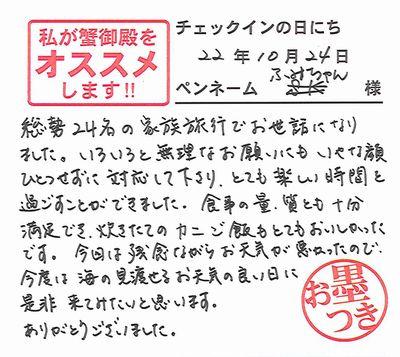 私が蟹御殿を
オススメ
します!!
チェックインの日にち
22年10月24日
ペンネーム ふみちゃん 様
総勢24名の家族旅行でお世話になり
ました。いろいろと無理なお願いにもいやな顔
ひとつせずに対応して下さり、とても楽しい時間を
過ごすことができました。食事の量、質とも十分
満足でき、炊きたてのカニご飯もとてもおいしかった
です。今回は残念ながらお天気が悪かったので、
今度は海の見渡せるお天気の良い日に
是非来てみたいと思います。
ありがとうございました。
お墨つき